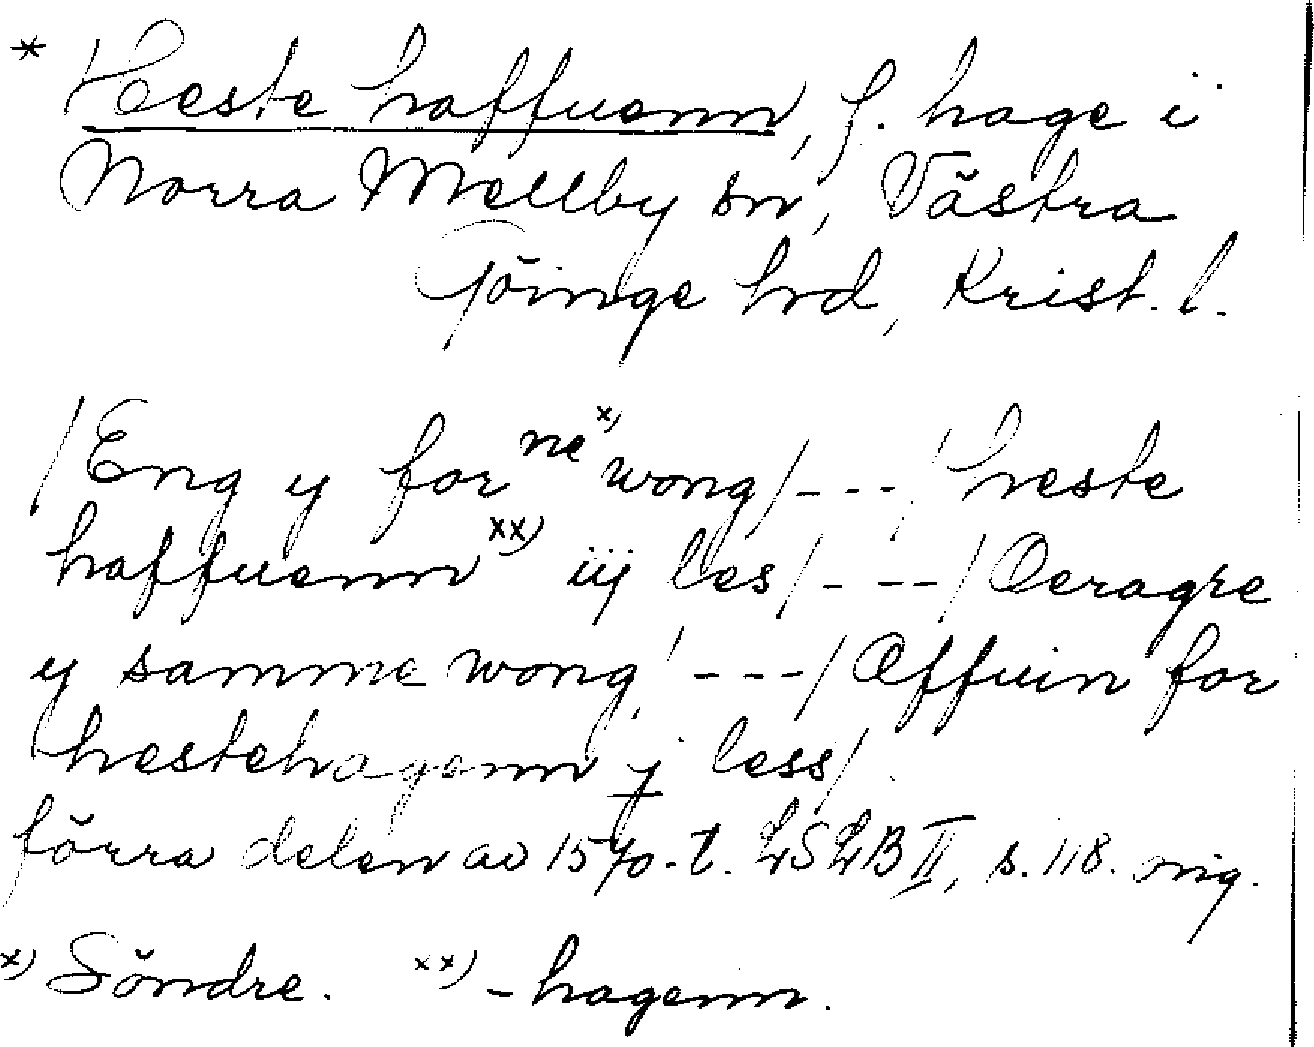 * Heste haffuenn, f. hage i
Norra Mellby sn, Västra
Göinge hrd, Krist. l.
/Eng y for ne x) wong/---/heste
haffuenn xx) iij les/---/Oeragre
y samme wong/---/Offuin for
hestehagenn j less/.
förra delen av 1570-t. LSLB II, s. 118. orig.
x) Söndre. xx) -hagenn.